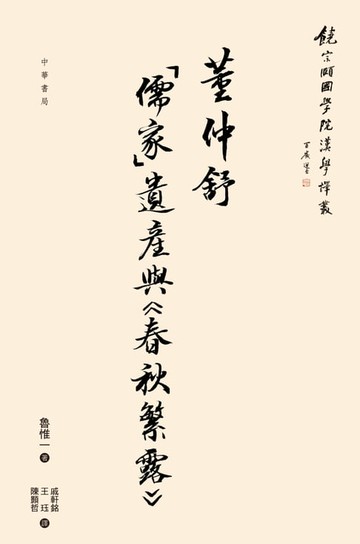 饒宗頤國學院漢學譯叢
董仲舒
「儒家」遺產與《春秋繁露》
中華書局
魯惟一 著
戚軒銘
王珏
陳顥哲 譯